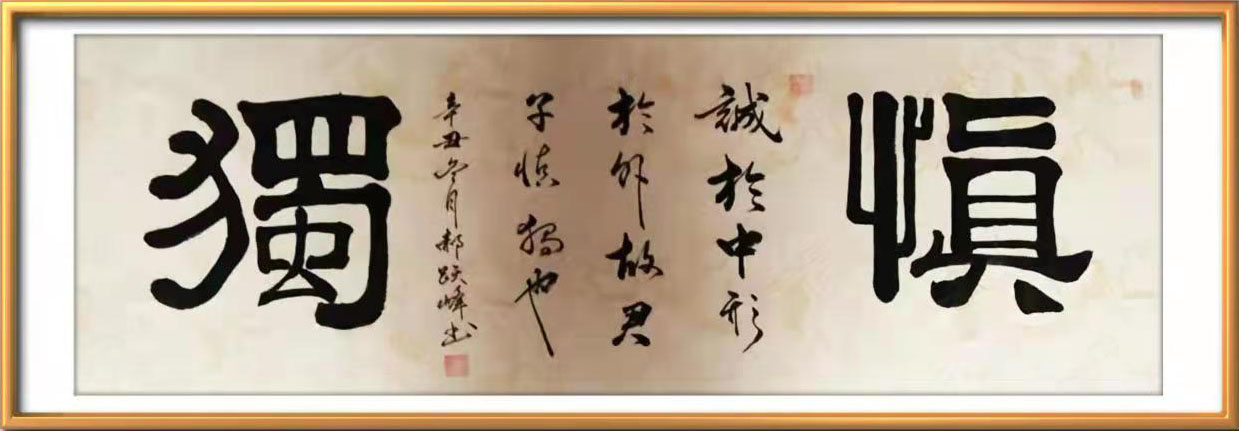 慎
誠於中形
於外故君
子慎獨也
辛丑冬月郝跃峰书
獨